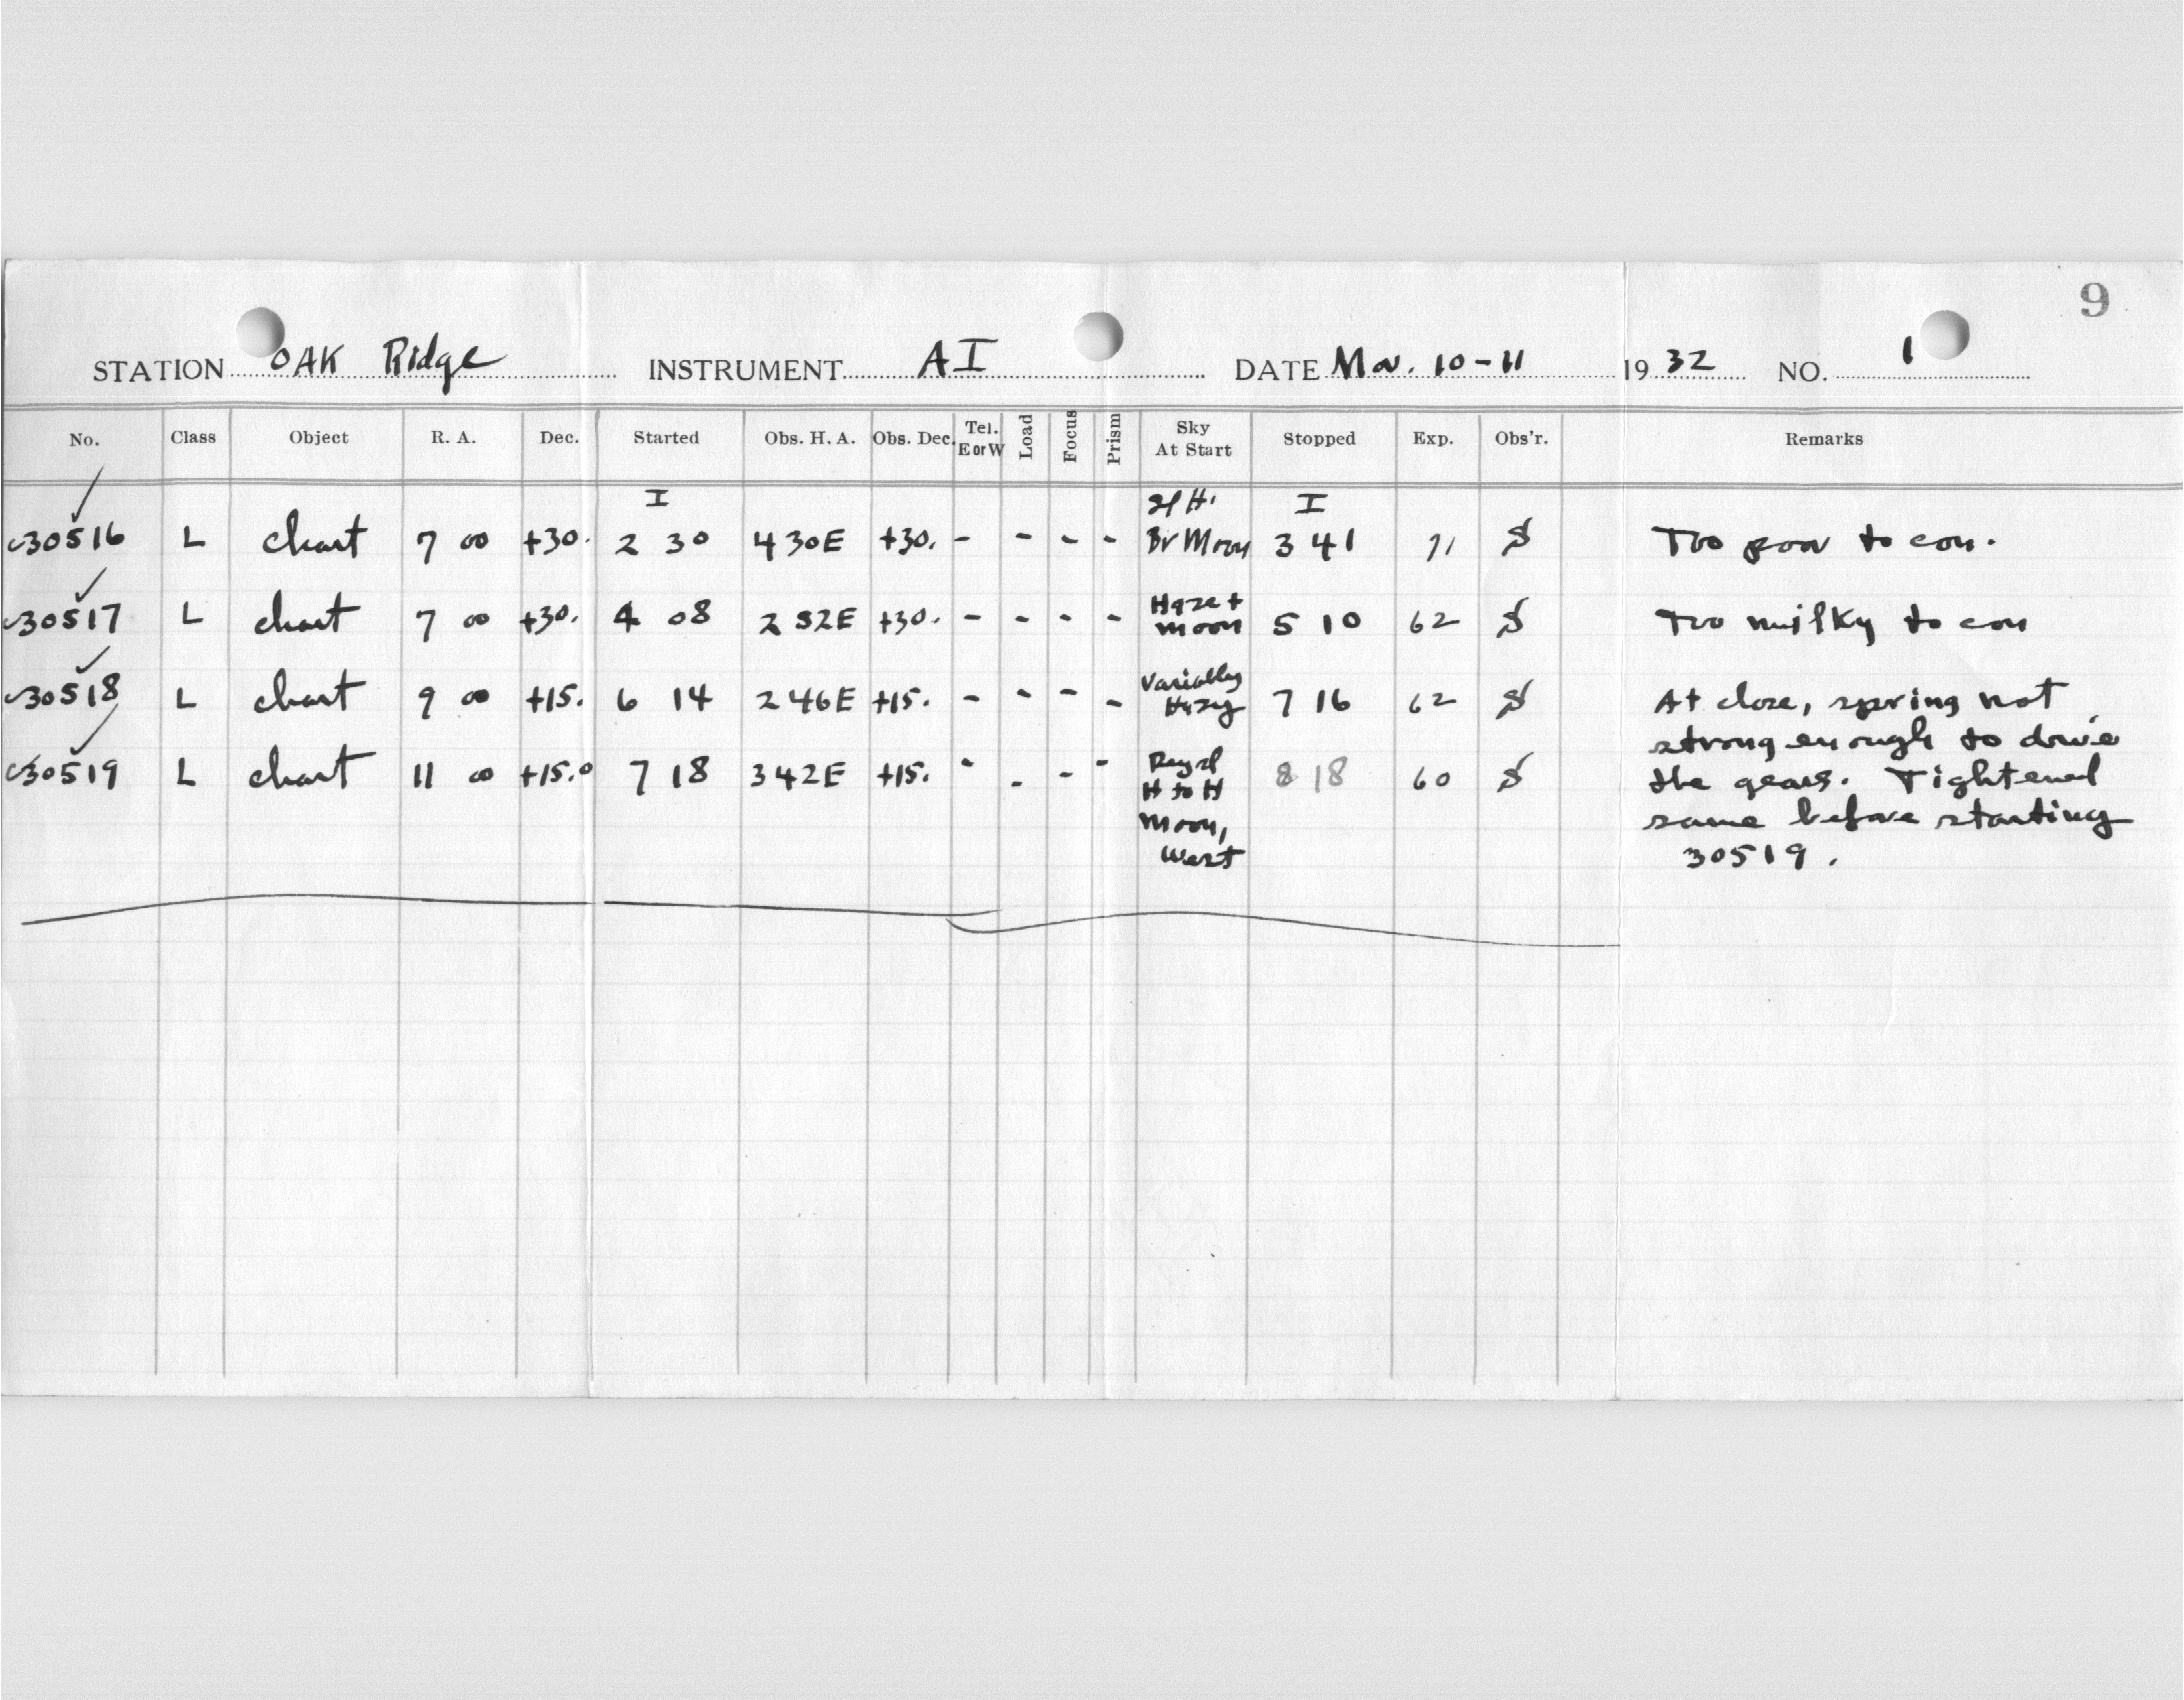 9
STATION OAK Ridge INSTRUMENT AI DATE Nov. 10-11 1932 NO. 1
No. Class Object R. A. Dec. Started Obs. H. A. Obs. Dec. Tel. E or W Load Focus Prism Sky At Start Stopped Exp. Obs'r. Remarks
I Sl H. I
30516 L chart 7 00 +30. 2 30 4 30E +30. - - - - Br Moon 3 41 71 S Too poor to con.
30517 L chart 7 00 +30. 4 08 2 52E +30. - - - - Haze + moon 5 10 62 S Too milky to con
30518 L chart 9 00 +15. 6 14 2 46E +15. - - - - Variably Hazy 7 16 62 S At close, spring not
strong enough to drive
30519 L chart 11 00 +15.0 7 18 3 42E +15. - - - - H to H 8 18 60 S the gears. Tightened
Moon, same before starting
West 30519.